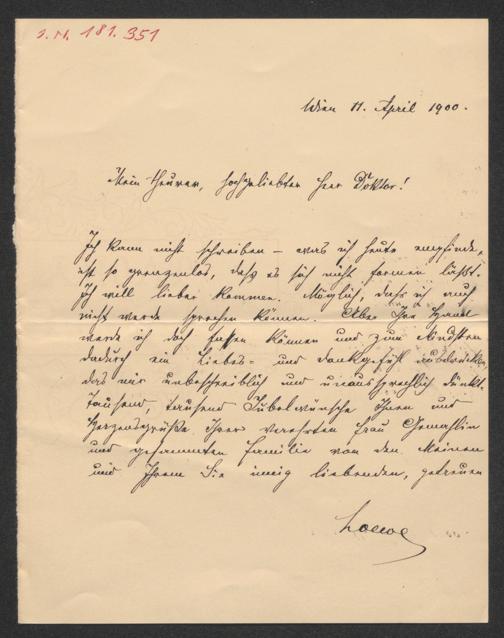 I. N. 181.351
Wien 11. April 1900.
Mein theurer, hochgeliebter Herr Doktor!
Ich kann nicht schreiben – was ich heute empfinde,
ist so grenzenlos, daß es sich nicht formen läßt.
Ich will lieber kommen. Möglich, daß ich auch
nicht werde sprechen können. Aber Ihre Hand
werde ich doch fassen können und zum Mindesten
dadurch ein Liebes- und Dankgefühl
das mir unbeschreiblich und unaussprechlich dünkt.
Tausend, tausend Jubelwünsche Ihnen und
Herzensgrüße Ihrer verehrten Frau Gemahlin
und gesammten Familie von den Meinen
und Ihrem Sie innig liebenden, getreuen
Loewe